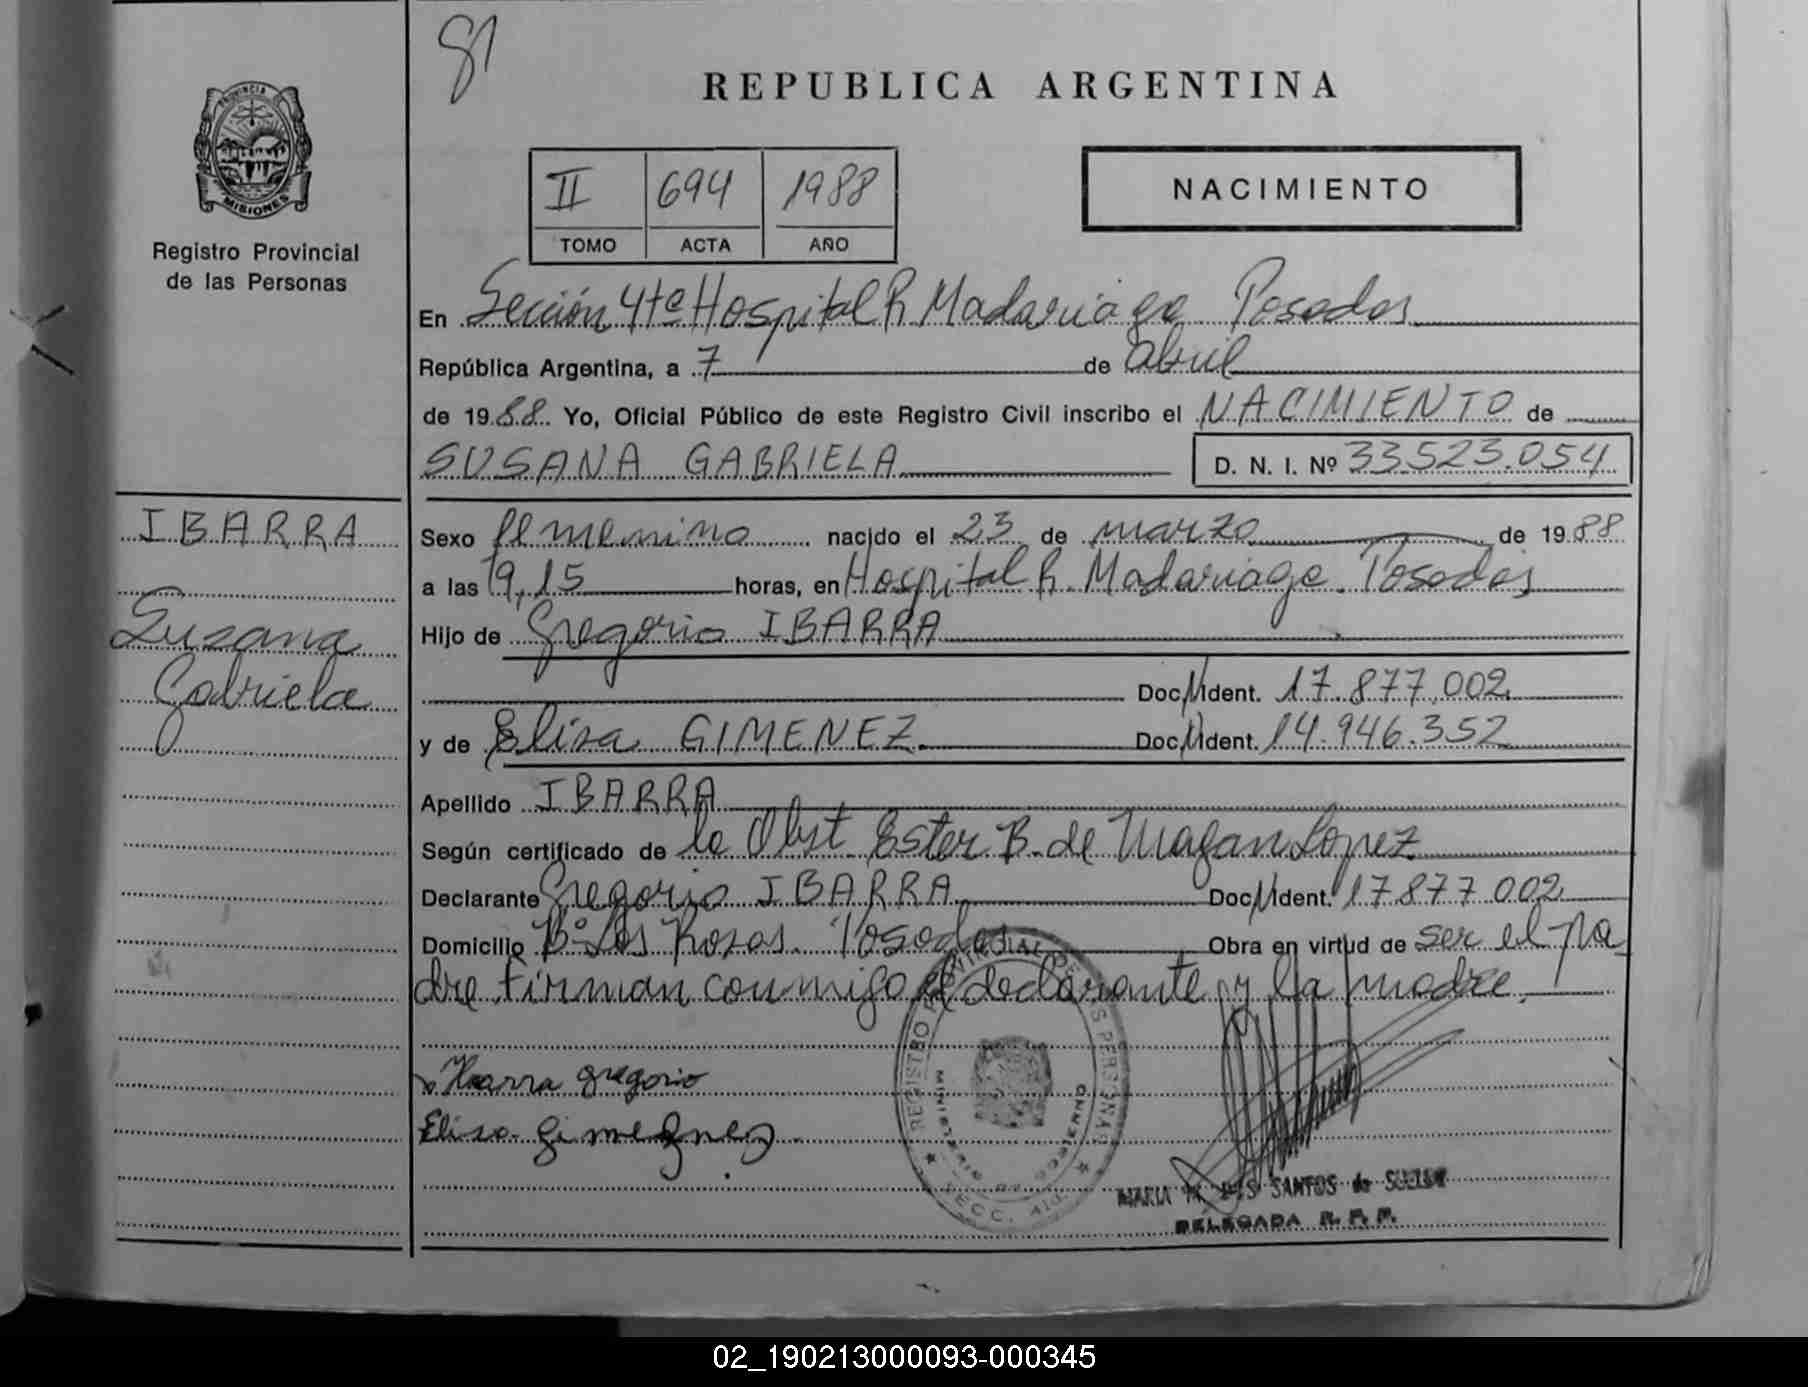 81
REPUBLICA ARGENTINA
PROVINCIA DE
MISIONES
Registro Provincial
de las Personas
II 694 1988
TOMO ACTA AÑO
NACIMIENTO
En Sección 4ta Hospital R Madariaga Posadas
República Argentina, a 7 de abril
de 1988 Yo, Oficial Público de este Registro Civil inscribo el NACIMIENTO de
SUSANA GABRIELA D. N. I. Nº 33.523.054
IBARRA
Susana
Gabriela
Sexo femenino nacido el 23 de marzo de 1988
a las 19,15 horas, en Hospital R. Madariaga. Posadas
Hijo de Gregorio IBARRA
Doc. Ident. 17.877.002
y de Elisa GIMENEZ Doc. Ident. 14.946.352
Apellido IBARRA
Según certificado de la Obst Ester B. de Magan Lopez
Declarante Gregorio IBARRA Doc. Ident. 17877002
Domicilio Bº Las Rosas. Posadas Obra en virtud de ser el pa
dre. Firman conmigo el declarante y la madre.
Ibarra gregorio
Elisa gimegnez
REGISTRO PROVINCIAL DE LAS PERSONAS
MINISTERIO DE GOBIERNO
SECC. 4ta
MARIA DOS SANTOS de
DELEGADA R. P. P.
02_190213000093-000345